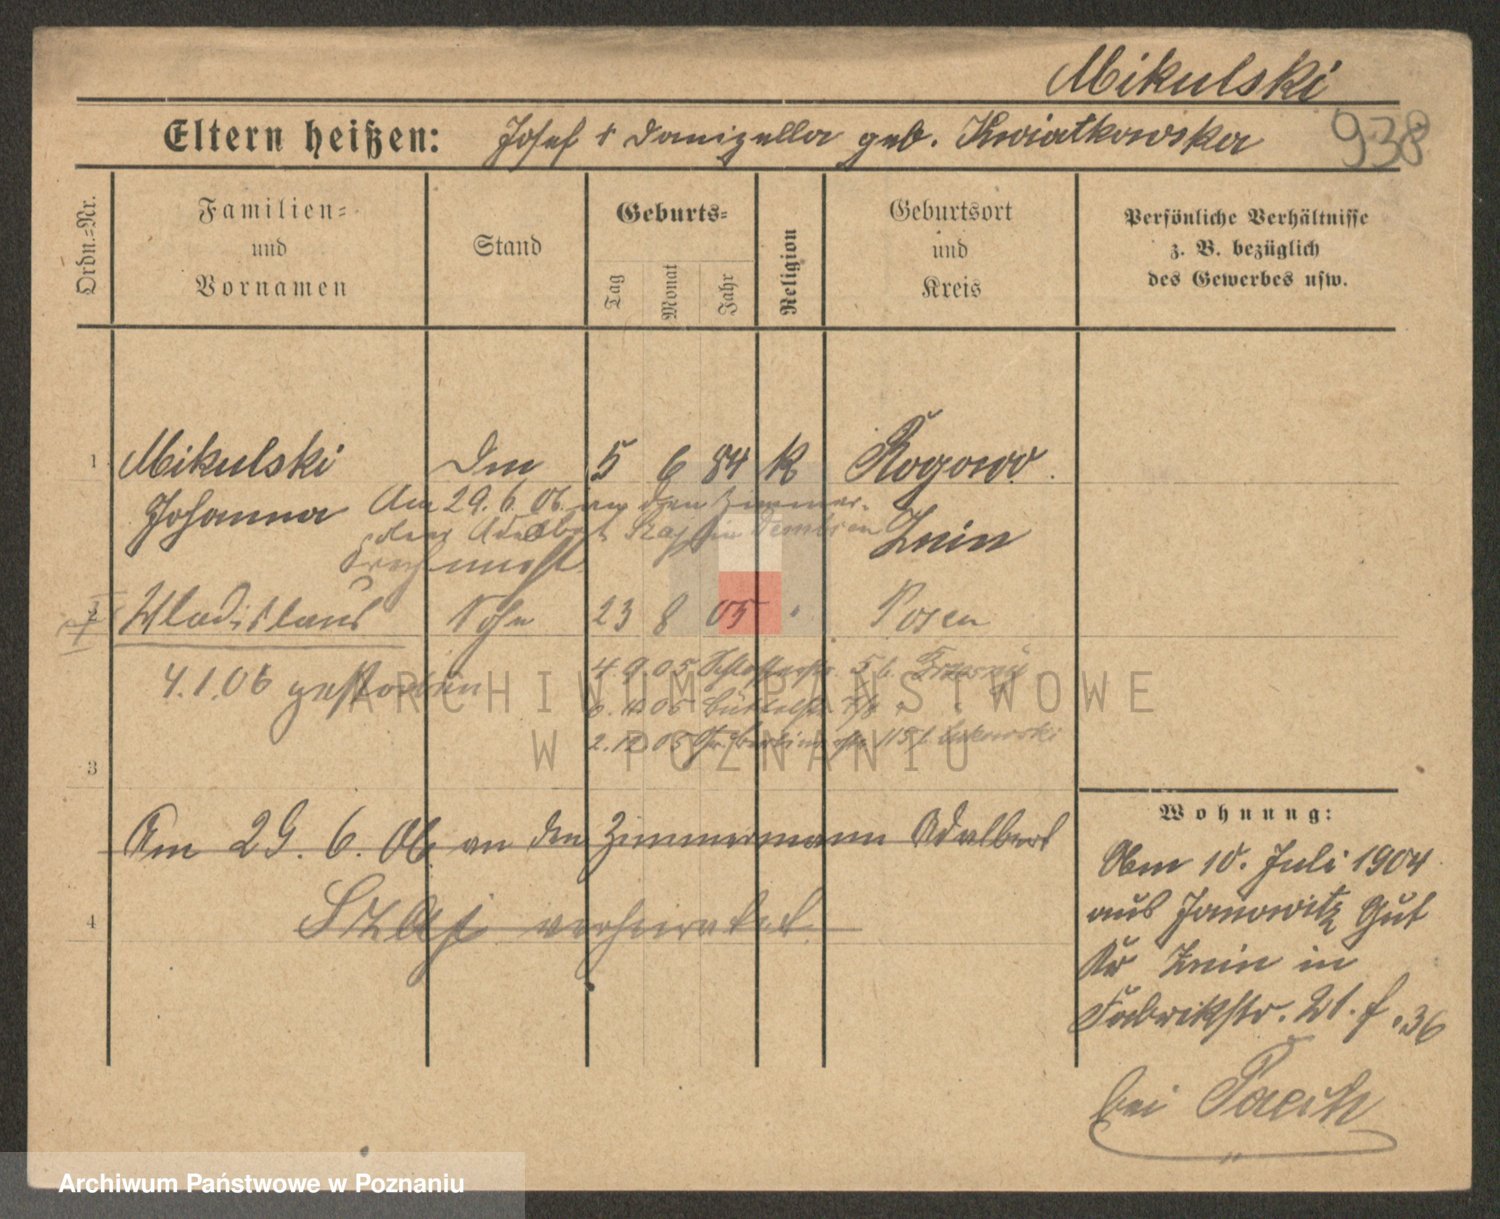 Mikulski
938
Eltern heißen: Josef & Danizella geb. Kwiatkowska
Ordn.=Nr.
Familien=
und
Vornamen
Stand
Geburts=
Tag
Monat
Jahr
Religion
Geburtsort
und
Kreis
Persönliche Verhältnisse
z. B. bezüglich
des Gewerbes usw.
1 Mikulski 5 6 84 K Rogowo
Johanna Znin
Am 29.6.06 an den Zimmer-
2 Wladislaus Sohn 23 8 05 " Posen
4.1.06 gestorben
4.9.05
2.12.05 115 b. Lukowski
3
Am 29.6.06 an den Zimmermann Adalbert
verheiratet.
4
Wohnung:
Am 10. Juli 1904
aus Janowitz Gut
Kr Znin in
Fabrikstr. 21. f. 36
bei
ARCHIWUM PAŃSTWOWE
W POZNANIU
Archiwum Państwowe w Poznaniu